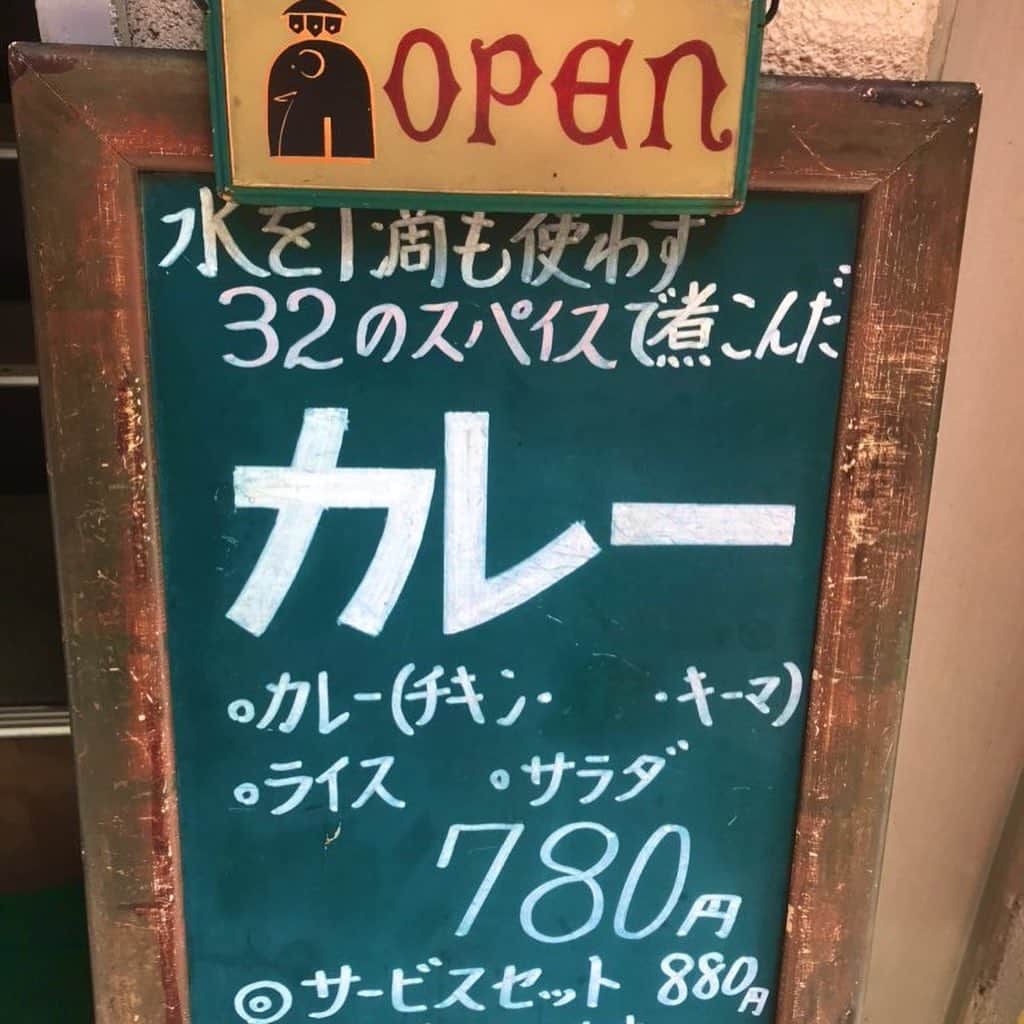 OPEN
水を1滴も使わず
32のスパイスで煮こんだ
カレー
。カレー(チキン・　　・キーマ)
。ライス　。サラダ
780円
◎サービスセット 880円